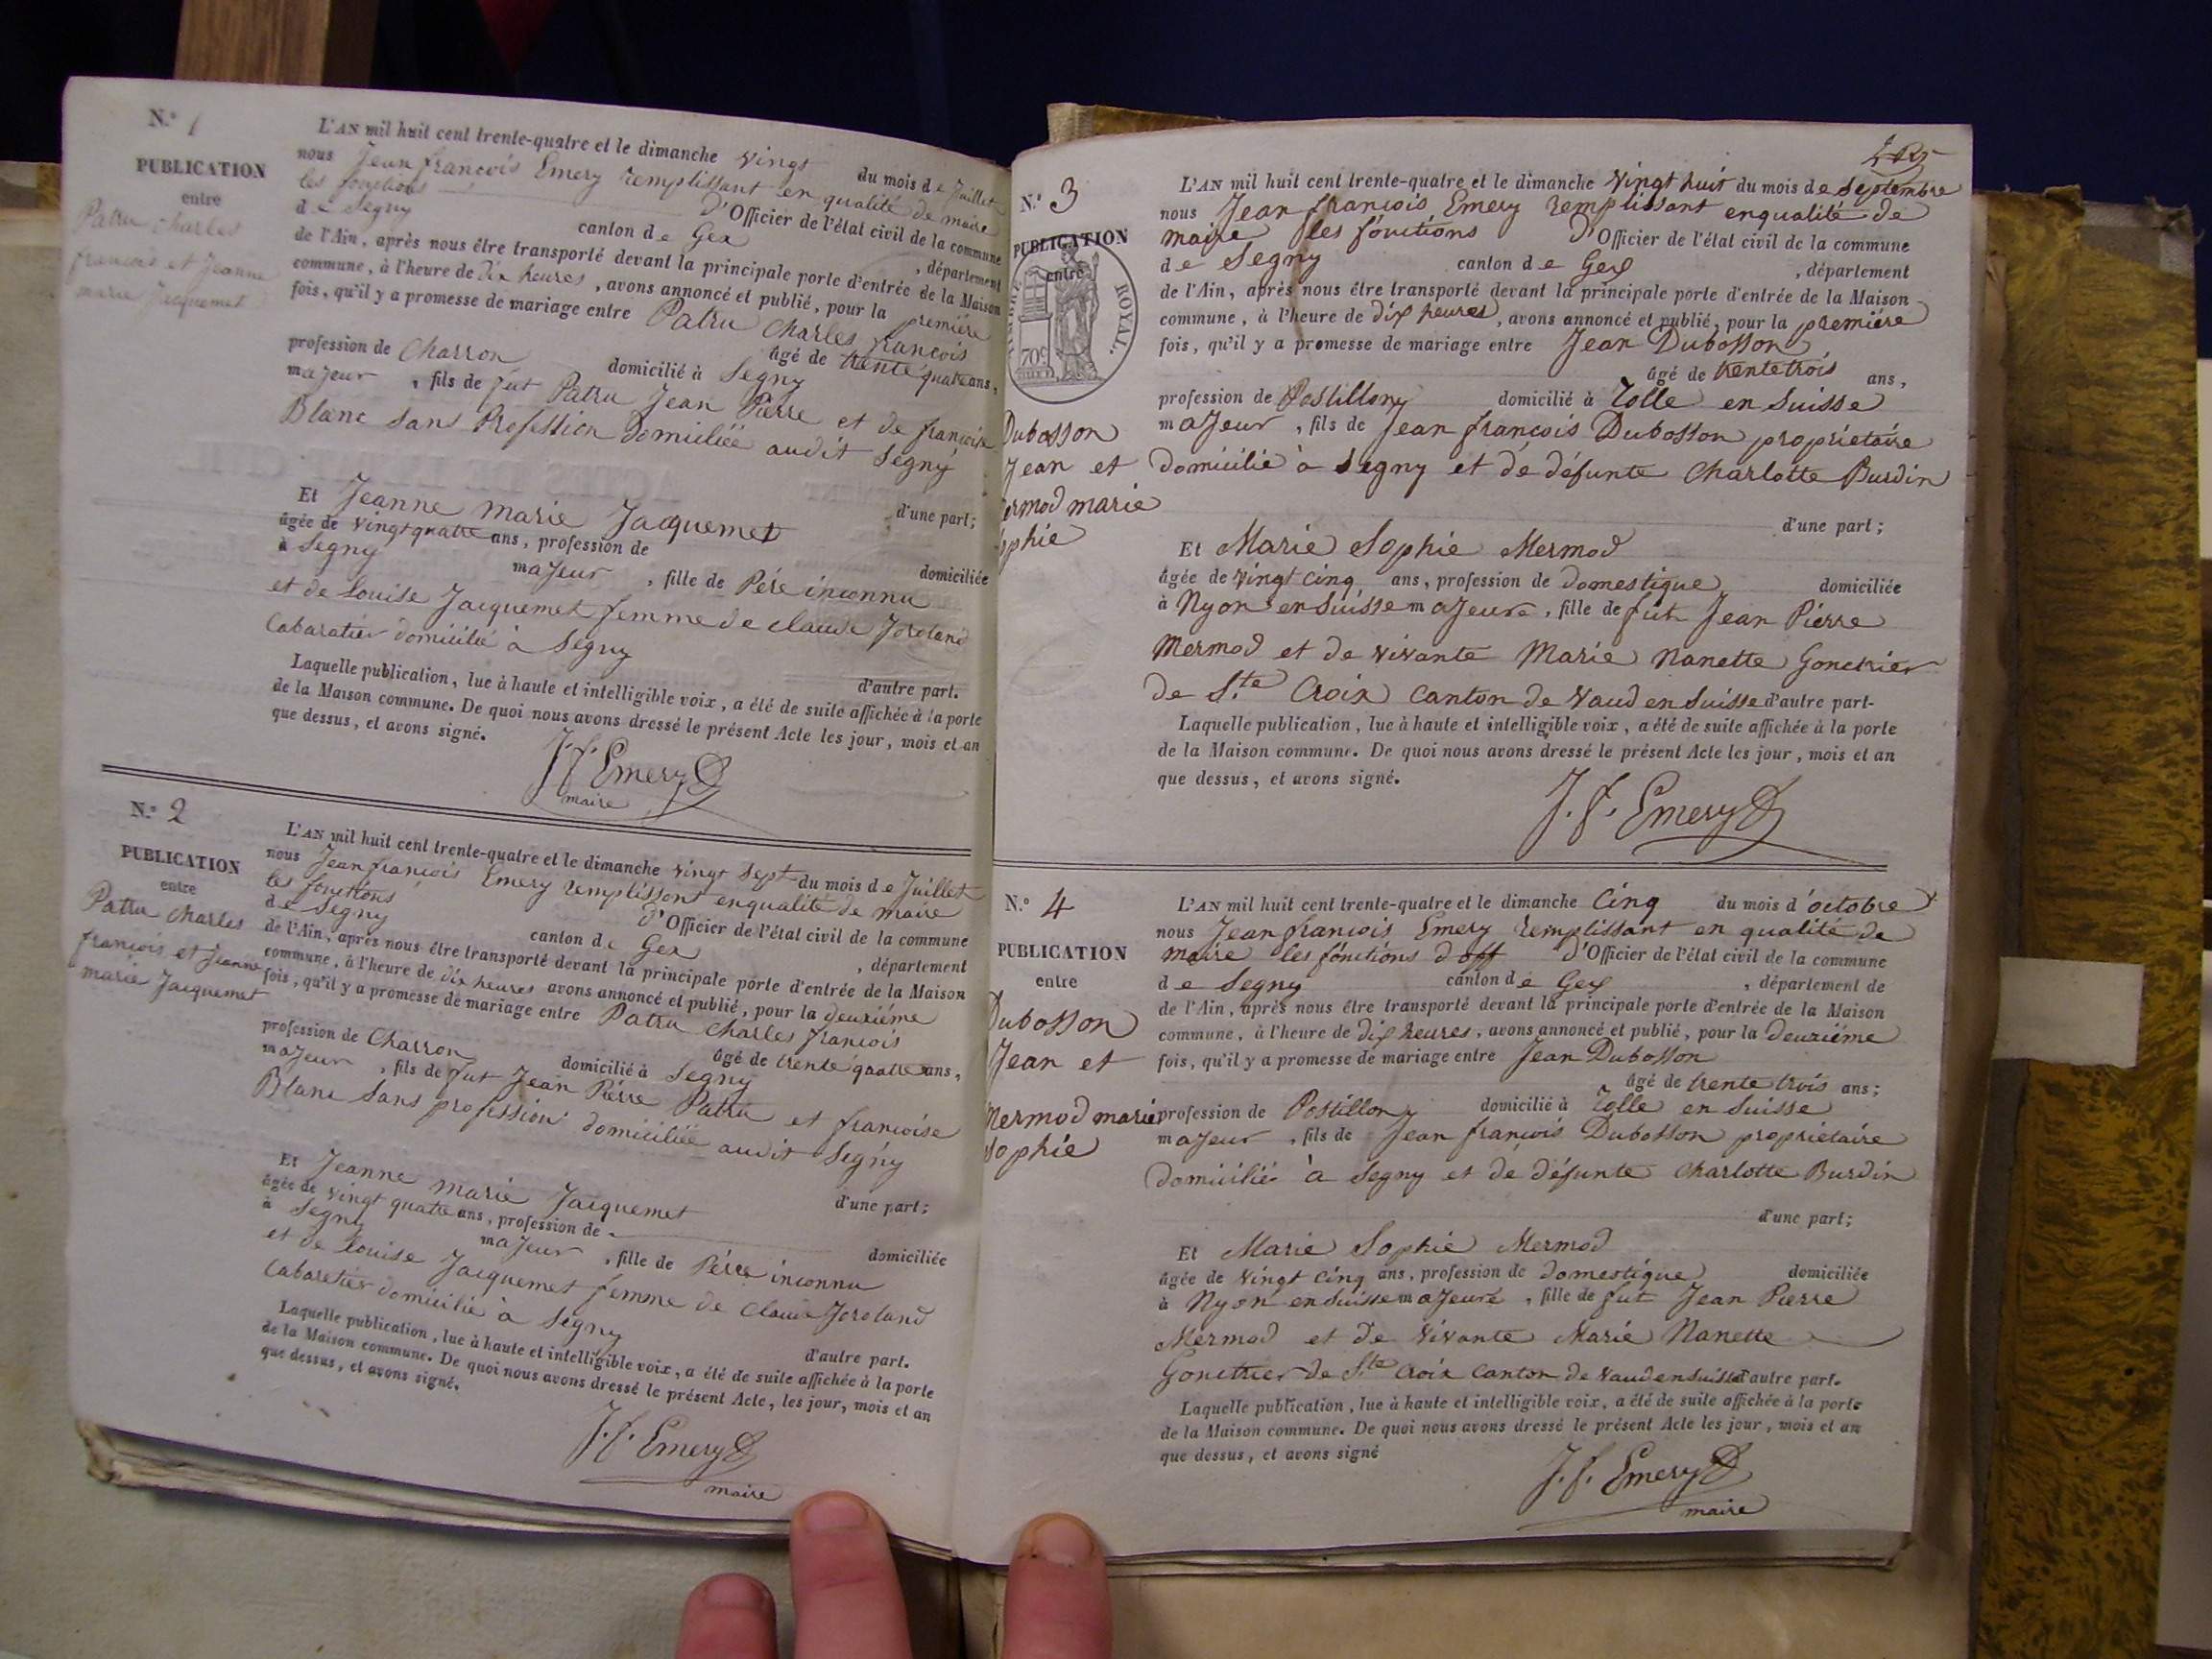 N.o 1
PUBLICATION
entre
Patru Charles
francois et Jeanne
marie Jacquemet
L'AN mil huit cent trente-quatre et le dimanche vingt du mois de Juillet
nous Jean francois Emery remplissant en qualité de maire
les fonctions d'Officier de l'état civil de la commune
de Segny canton de Gex , département
de l'Ain, après nous être transporté devant la principale porte d'entrée de la Maison
commune, à l'heure de dix heures , avons annoncé et publié, pour la premiére
fois, qu'il y a promesse de mariage entre Patru Charles francois
âgé de trente quatre ans,
profession de Charron domicilié à Segny
majeur , fils de fut Patru Jean Pierre et de francoise
Blanc sans Profession domiciliée audit Segny
d'une part;
Et Jeanne marie Jacquemet
âgée de vingt quatre ans, profession de domiciliée
à Segny majeur , fille de Pére inconnu
et de Louise Jacquemet femme de claude
Cabaratier domicilié à Segny
d'autre part.
Laquelle publication, lue à haute et intelligible voix, a été de suite affichée à la porte
de la Maison commune. De quoi nous avons dressé le présent Acte les jour, mois et an
que dessus, et avons signé.
J. f. Emery
maire
N.o 2
PUBLICATION
entre
Patru Charles
francois et Jeanne
marie Jacquemet
L'AN mil huit cent trente-quatre et le dimanche vingt sept du mois de Juillet
nous Jean francois Emery remplissant enqualité de maire
les fonctions d'Officier de l'état civil de la commune
de Segny canton de Gex , département
de l'Ain, après nous être transporté devant la principale porte d'entrée de la Maison
commune, à l'heure de dix heures avons annoncé et publié, pour la deuxiéme
fois, qu'il y a promesse de mariage entre Patru Charles francois
âgé de trente quatre ans,
profession de Charron domicilié à Segny
majeur , fils de fut Jean Piérre Patru et francoise
Blanc sans profession domiciliée audit Segny
d'une part;
Et Jeanne marie Jacquemet
âgée de vingt quatre ans, profession de domiciliée
à Segny majeur , fille de Pére inconnu
et de Louise Jacquemet femme de claude
Cabaretier domicilié à Segny
d'autre part.
Laquelle publication, lue à haute et intelligible voix, a été de suite affichée à la porte
de la Maison commune. De quoi nous avons dressé le présent Acte, les jour, mois et an
que dessus, et avons signé.
J. f. Emery
maire
N.o 3
PUBLICATION
entre
ROYAL.
70c
Dubosson
Jean et
ermod marie
ophie
L'AN mil huit cent trente-quatre et le dimanche vingt huit du mois de septembre
nous Jean francois Emery remplissant enqualité de
maire les fonctions d'Officier de l'état civil de la commune
de Segny canton de Gex , département
de l'Ain, après nous être transporté devant la principale porte d'entrée de la Maison
commune, à l'heure de dix heures , avons annoncé et publié, pour la premiére
fois, qu'il y a promesse de mariage entre Jean Dubosson
âgé de trente trois ans,
profession de Postillon domicilié à Rolle en Suisse
majeur , fils de Jean francois Dubosson propriétaire
domicilié à Segny et de défunte Charlotte Burdin
d'une part;
Et Marie Sophie Mermod
âgée de vingt cinq ans, profession de domestique domiciliée
à Nyon en Suisse majeure , fille de fut Jean Piérre
Mermod et de vivante Marie Nanette
de S.te Croix canton de Vaud en Suisse d'autre part-
Laquelle publication, lue à haute et intelligible voix, a été de suite affichée à la porte
de la Maison commune. De quoi nous avons dressé le présent Acte les jour, mois et an
que dessus, et avons signé.
J. f. Emery
N.o 4
PUBLICATION
entre
Dubosson
Jean et
Mermod marie
sophie
L'AN mil huit cent trente-quatre et le dimanche Cinq du mois d'octobre
nous Jean francois Emery remplissant en qualité de
maire les fonctions d'off d'Officier de l'état civil de la commune
de Segny canton de Gex , département de
de l'Ain, après nous être transporté devant la principale porte d'entrée de la Maison
commune, à l'heure de dix heures, avons annoncé et publié, pour la deuxiéme
fois, qu'il y a promesse de mariage entre Jean Dubosson
âgé de trente trois ans;
profession de Postillon domicilié à Rolle en Suisse
majeur , fils de Jean francois Dubosson propriétaire
domicilié à Segny et de défunte Charlotte Burdin
d'une part;
Et Marie Sophie Mermod
âgée de vingt cinq ans, profession de domestique domiciliée
à Nyon en Suisse majeure , fille de fut Jean Pierre
Mermod et de vivante Marie Nanette
de S.te Croix canton de Vaud en Suisse d'autre part.
Laquelle publication, lue à haute et intelligible voix, a été de suite affichée à la porte
de la Maison commune. De quoi nous avons dressé le présent Acte les jour, mois et an
que dessus, et avons signé
J. f. Emery
maire